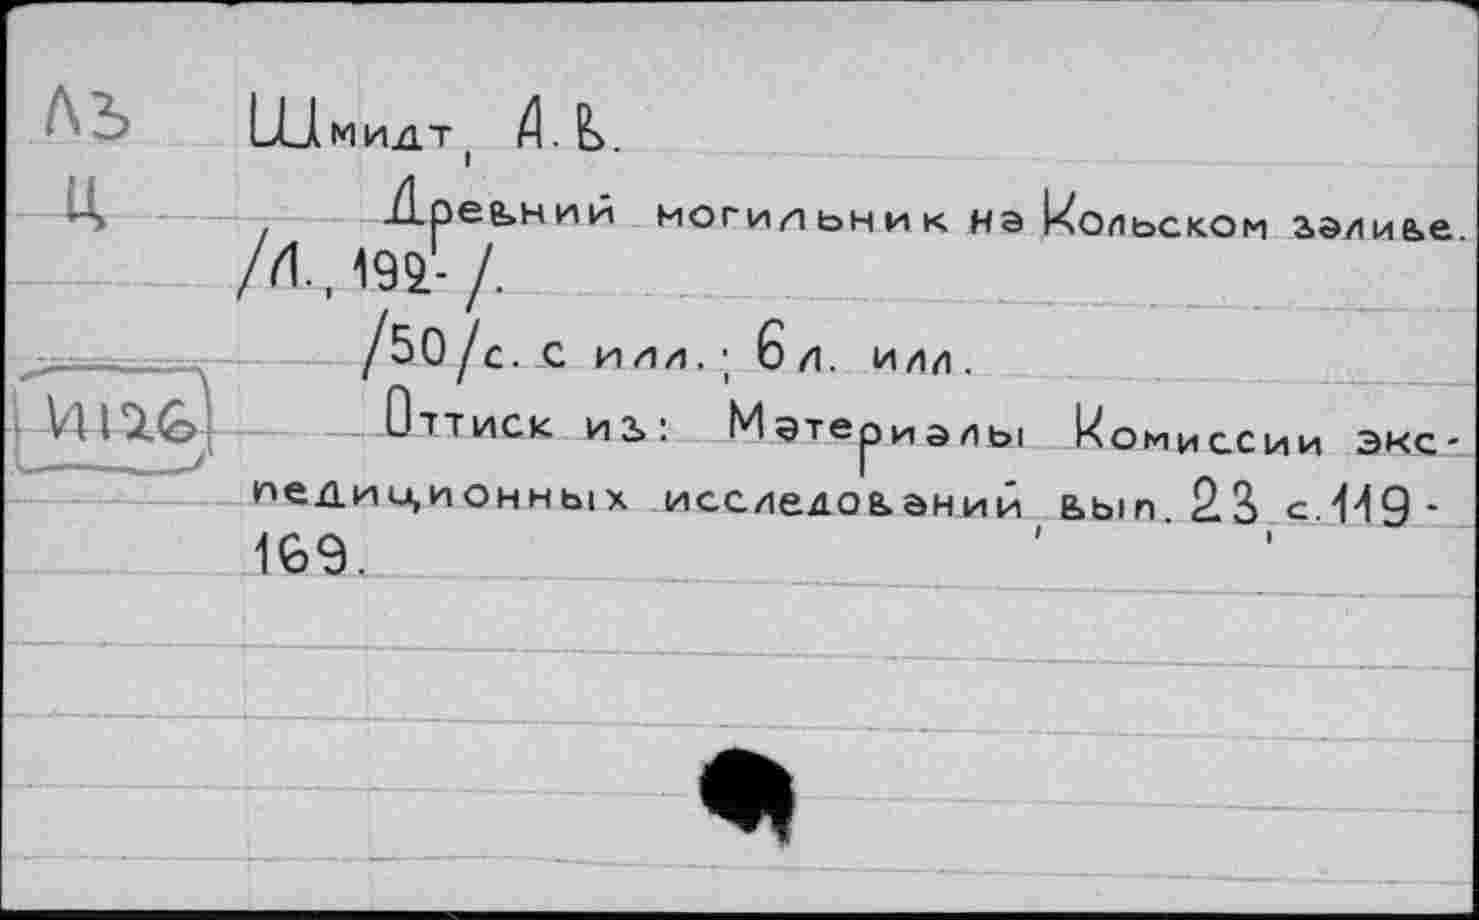 АЗ Шмидт, А.В.
Ц Древний могильник на Кольском заливе.
/Л., 192- /.
/50/с. с илл.; 6 л. илл.
И126 Оттиск из: Материалы Комиссии экс-
педиционных исследований, вып. 23, с. 119-
169.